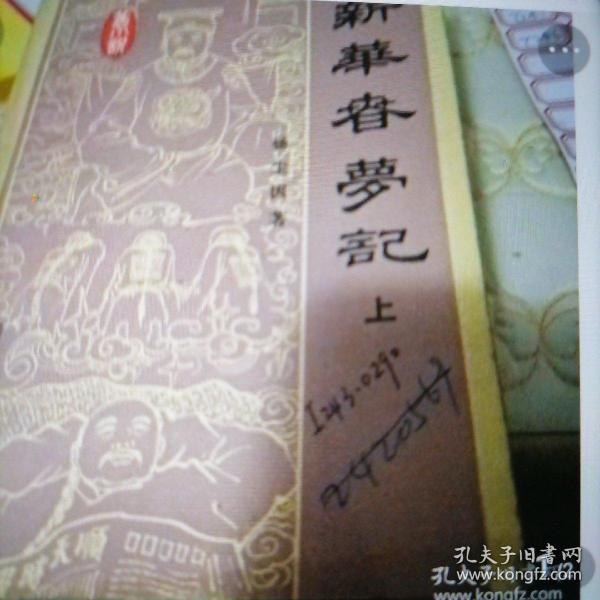 新華春夢記
上
楊塵因著
I243.0290
2420567
順天
孔夫子旧书网
www.kongfz.com
1/2